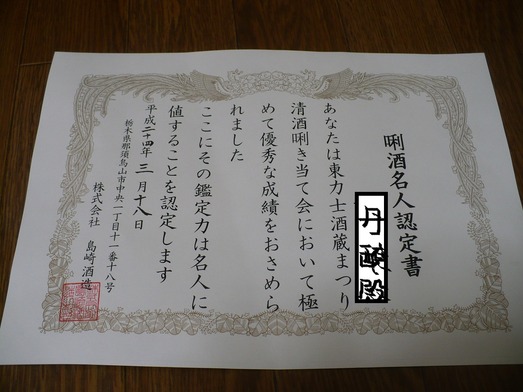 唎酒名人認定書
丹醸殿
あなたは東力士酒蔵まつり
清酒唎き当て会において極
めて優秀な成績をおさめら
れました
ここにその鑑定力は名人に
値することを認定します
平成二十四年 三月十八日
栃木県那須烏山市中央一丁目十一番十八号
株式会社 島崎酒造